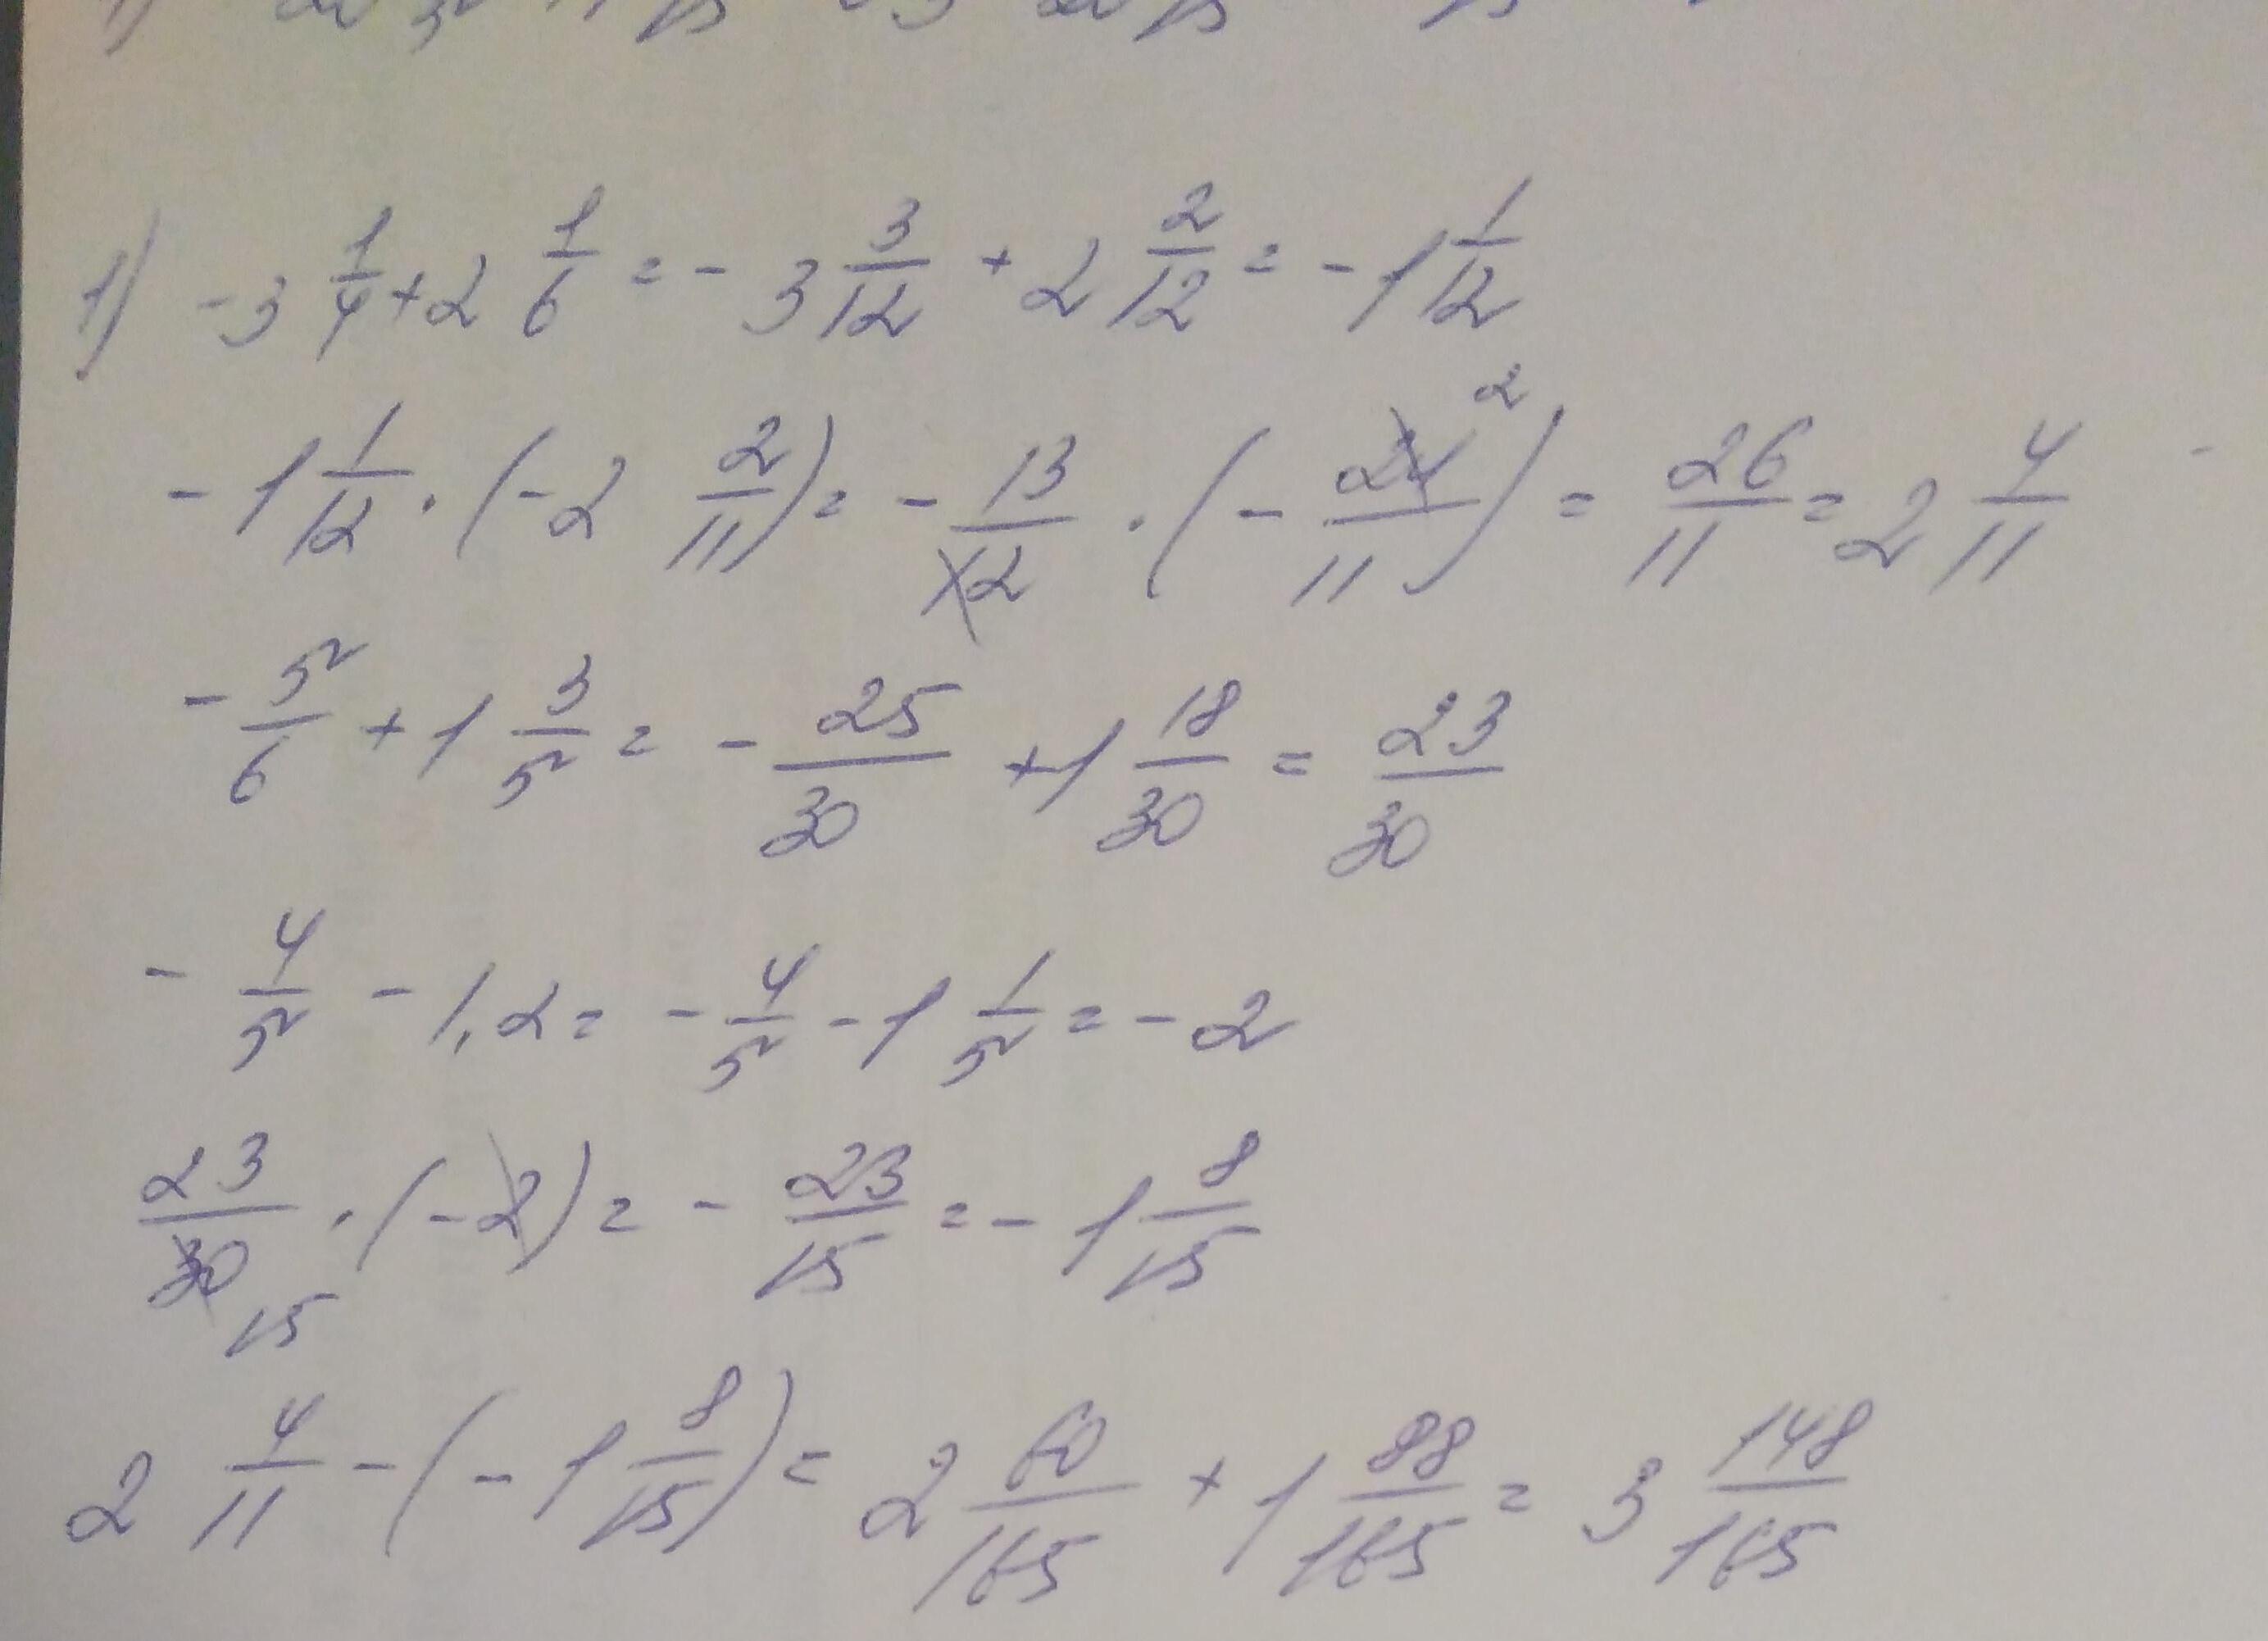 1) -3 1/4 + 2 1/6 = -3 3/12 + 2 2/12 = -1 1/12
-1 1/12 · (-2 2/11) = -13/12 · (-24/11) 2 = 26/11 = 2 4/11
-5/6 + 1 3/5 = -25/30 + 1 18/30 = 23/30
-4/5 - 1,2 = -4/5 - 1 1/5 = -2
23/30 15 · (-2) = -23/15 = -1 8/15
2 4/11 - (-1 8/15) = 2 60/165 + 1 88/165 = 3 148/165